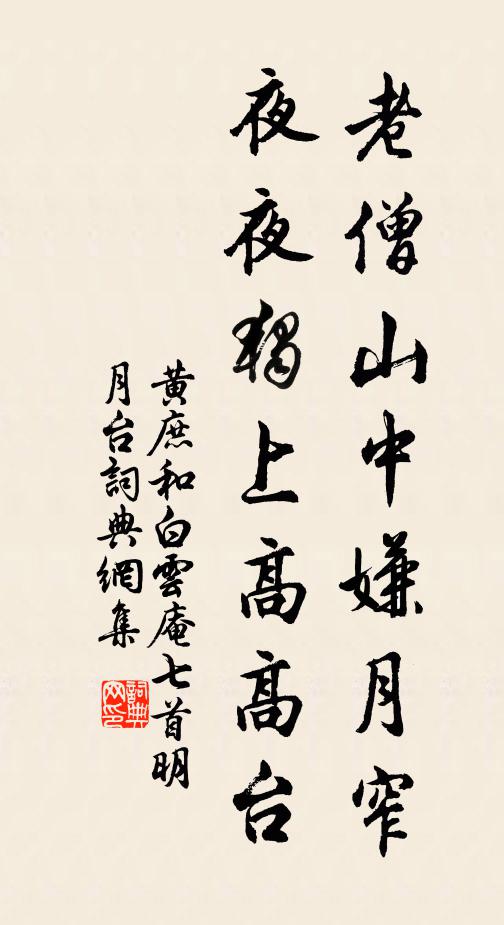 老僧山中嫌月窄
夜夜獨上高高台
黄庶和白雲庵七首明
月台詞典網集
詞典
网印